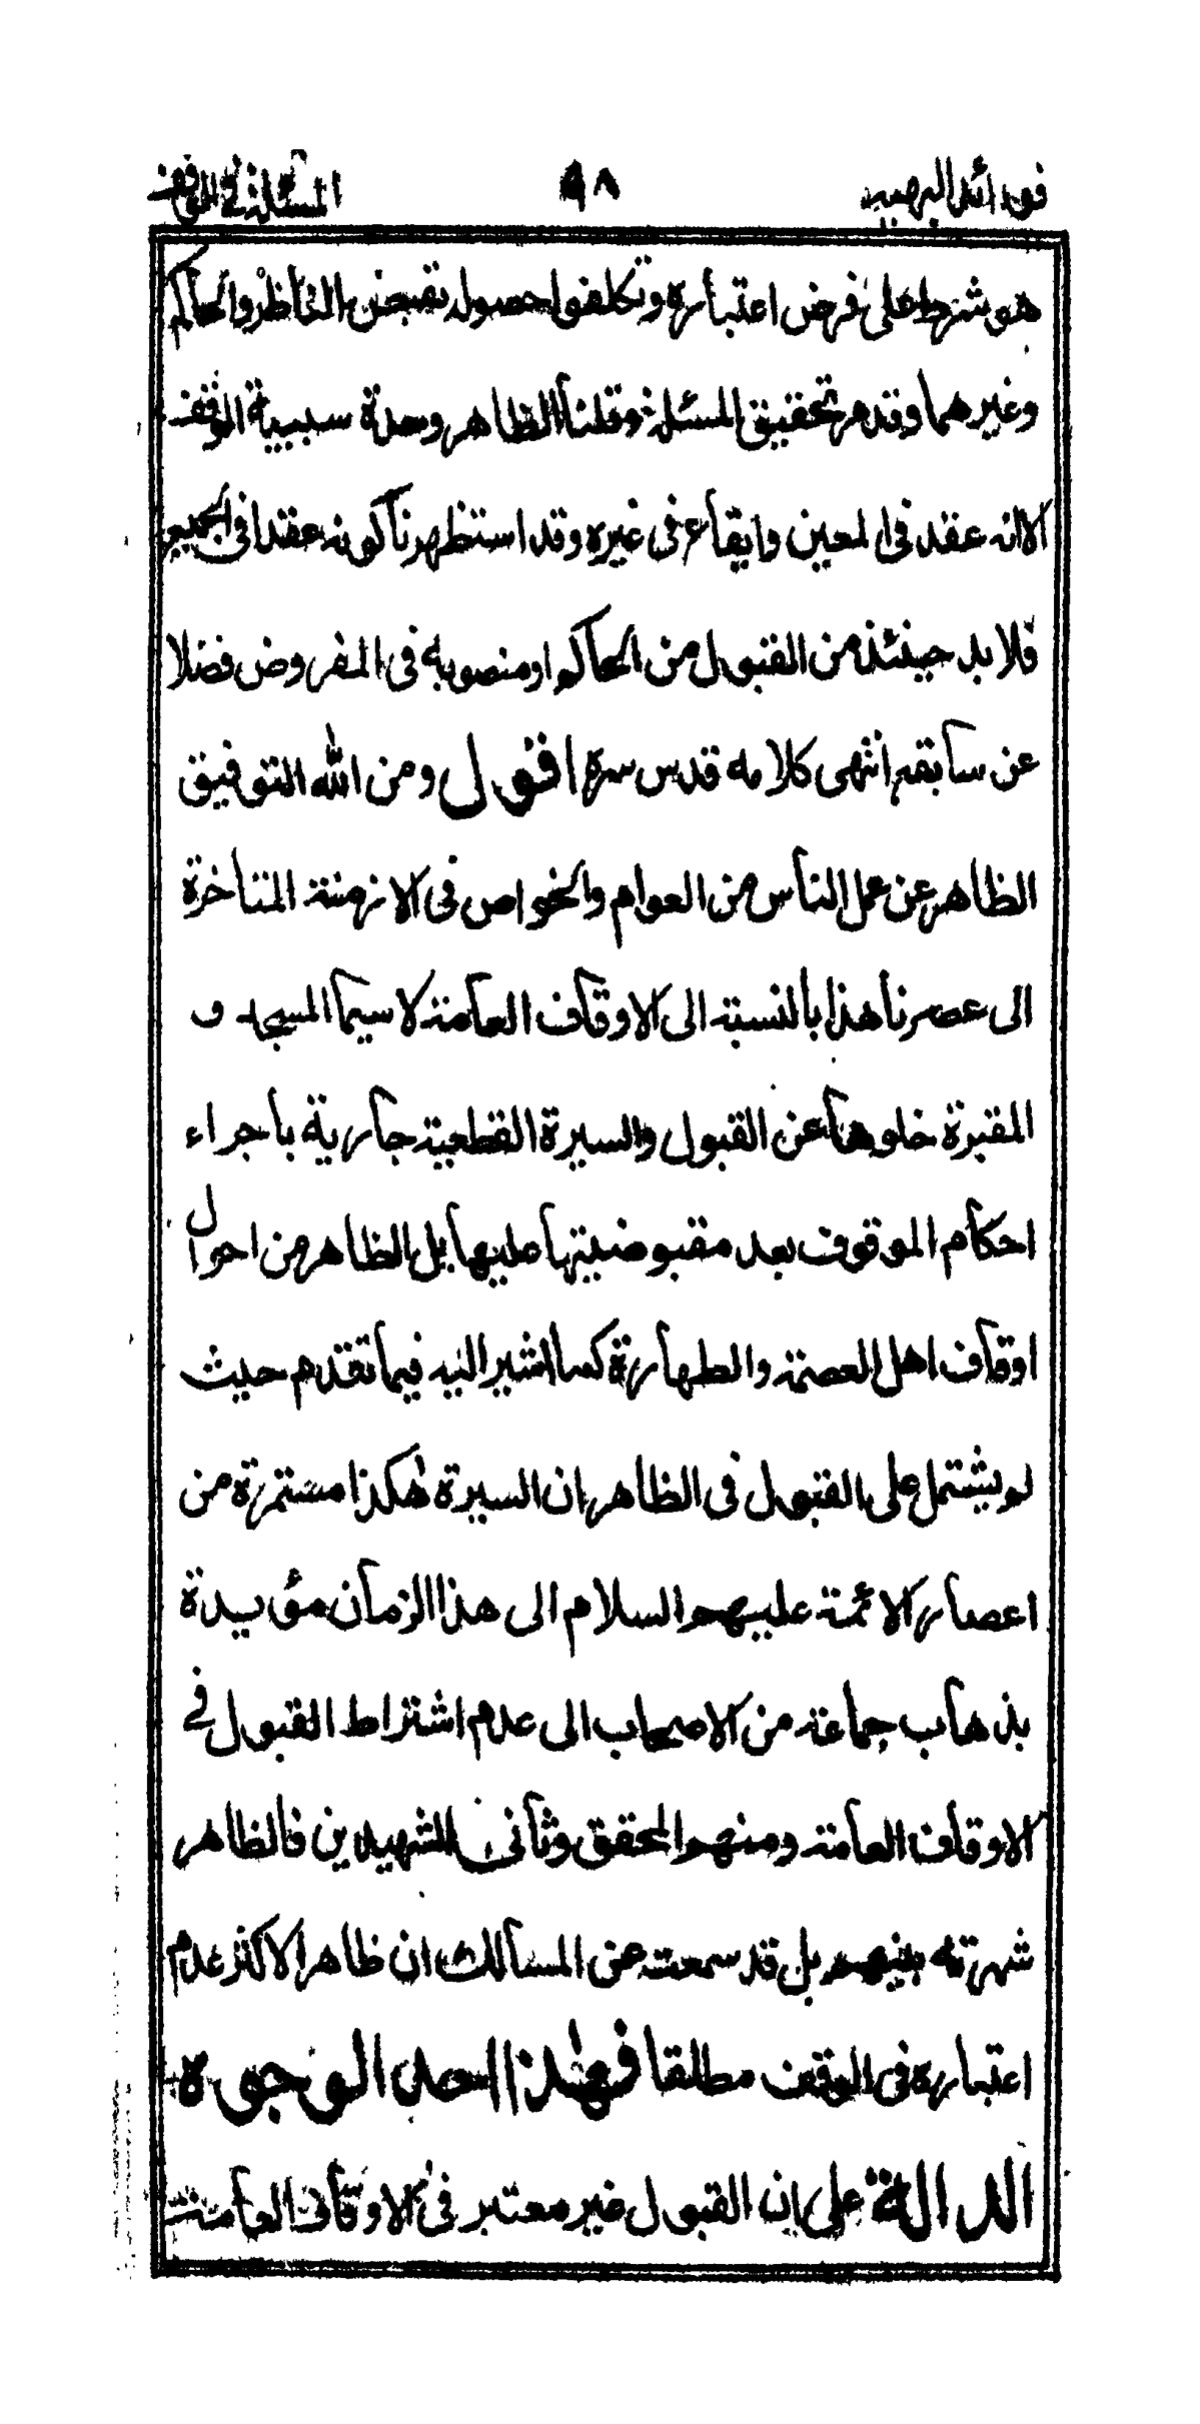 فوائد البهيه ٩٨ المسئلة فی الوقف
هو شرط علی فرض اعتباره وتكلفوا حصوله بقبض الناظر والحاكم
وغيرهما وقد مر تحقيق المسئلة وقلنا الظاهر وحدة سببية الوقف
لانه عقد فی المعين وايقاع فی غيره وقد استظهرنا كونه عقدا فی الجميع
فلا بد حينئذ من القبول من الحاكم او منصوبه فی المفروض فضلا
عن سابقه انتهی كلامه قدس سره اقول ومن الله التوفيق
الظاهر عن عمل الناس من العوام والخواص فی الازمنة المتاخرة
الی عصرنا هذا بالنسبة الی الاوقاف العامة لا سيما المسجد و
المقبرة خلوها عن القبول والسيرة القطعية جارية باجراء
احكام الموقوف بعد مقبوضيتها عليها بل الظاهر من احوال
اوقاف اهل العصمة والطهارة كما اشير اليه فيما تقدم حيث
لم يشتمل علی القبول فی الظاهر ان السيرة هكذا مستمرة من
اعصار الائمة عليهم السلام الی هذا الزمان مؤيدة
بذهاب جماعة من الاصحاب الی عدم اشتراط القبول فی
الاوقاف العامة ومنهم المحقق وثانی الشهيدين فالظاهر
شهرته بينهم بل قد سمعت عن المسالك ان ظاهر الاكثر عدم
اعتباره فی الوقف مطلقا فهذا احد الوجوه
الدالة علی ان القبول غير معتبر فی الاوقاف العامة